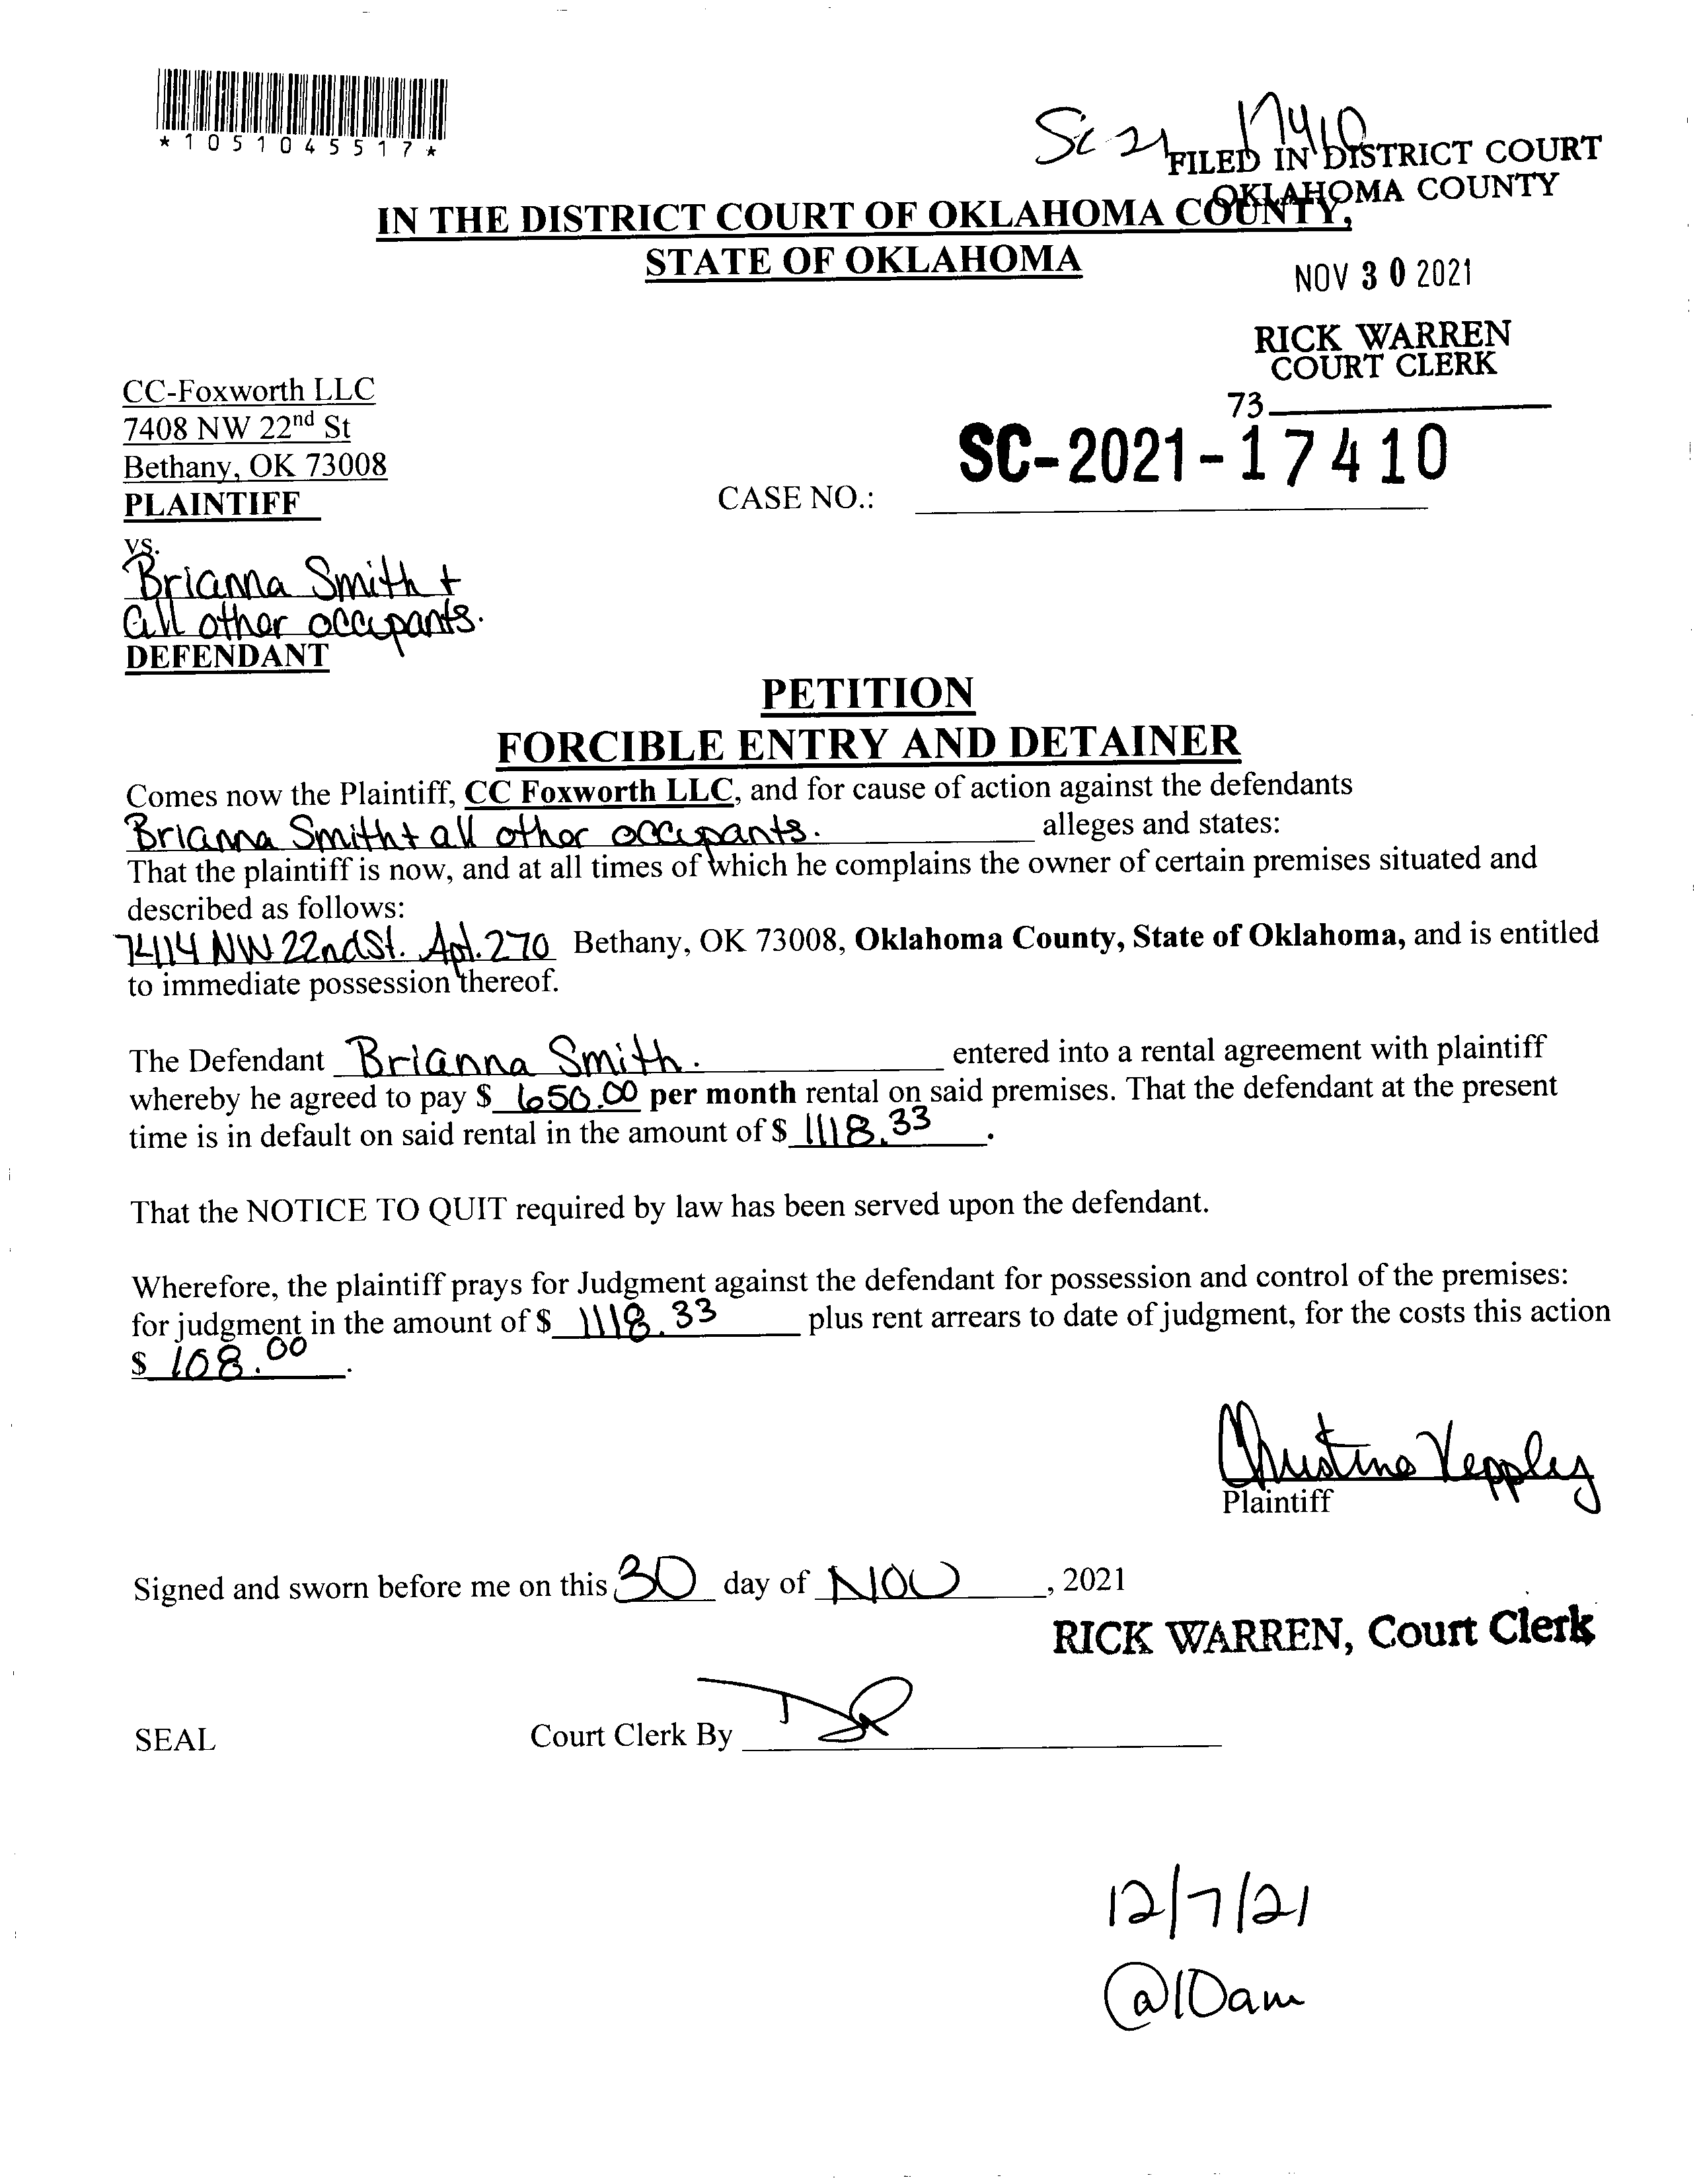 *1051045517*
SC 21 17410
FILED IN DISTRICT COURT
OKLAHOMA COUNTY
IN THE DISTRICT COURT OF OKLAHOMA COUNTY,
STATE OF OKLAHOMA
NOV 30 2021
RICK WARREN
COURT CLERK
73
CC-Foxworth LLC
7408 NW 22nd St
Bethany, OK 73008
PLAINTIFF
SC-2021-17410
CASE NO.:
vs.
Brianna Smith +
all other occupants.
DEFENDANT
PETITION
FORCIBLE ENTRY AND DETAINER
Comes now the Plaintiff, CC Foxworth LLC, and for cause of action against the defendants
Brianna Smith + all other occupants. alleges and states:
That the plaintiff is now, and at all times of which he complains the owner of certain premises situated and
described as follows:
7414 NW 22nd St. Apt. 270 Bethany, OK 73008, Oklahoma County, State of Oklahoma, and is entitled
to immediate possession thereof.
The Defendant Brianna Smith. entered into a rental agreement with plaintiff
whereby he agreed to pay $ 650.00 per month rental on said premises. That the defendant at the present
time is in default on said rental in the amount of $ 1118.33.
That the NOTICE TO QUIT required by law has been served upon the defendant.
Wherefore, the plaintiff prays for Judgment against the defendant for possession and control of the premises:
for judgment in the amount of $ 1118.33 plus rent arrears to date of judgment, for the costs this action
$ 108.00.
Christina
Plaintiff
Signed and sworn before me on this 30 day of NOV, 2021
RICK WARREN, Court Clerk
SEAL Court Clerk By
12/7/21
@10am